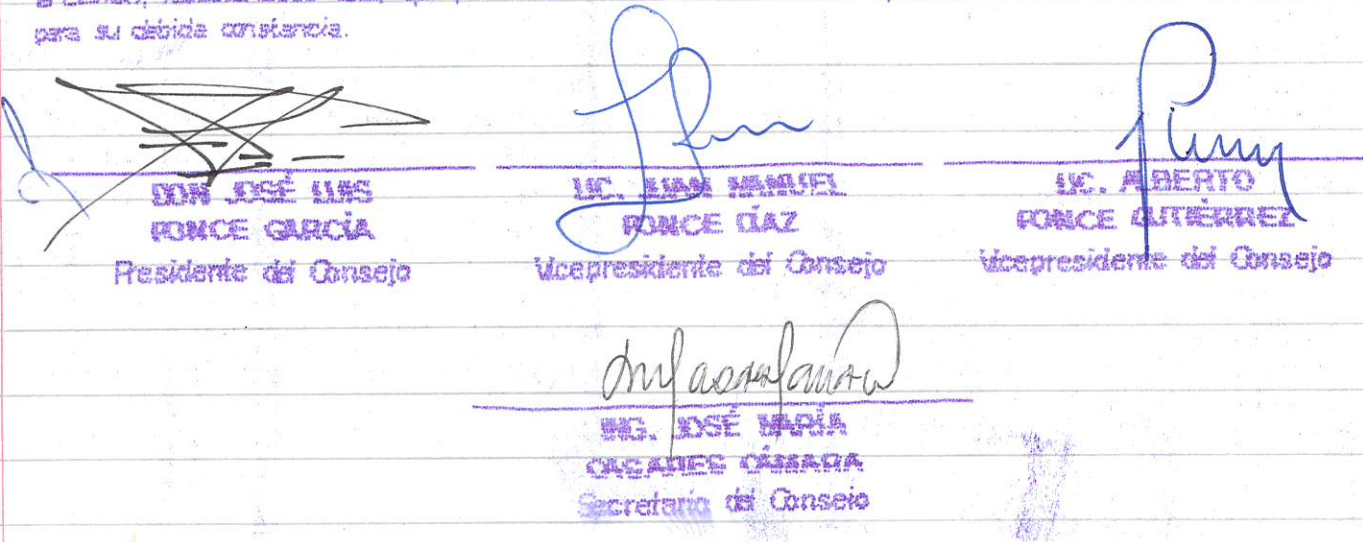 para su debida constancia.
DON JOSÉ LUIS
PONCE GARCÍA
Presidente del Consejo
LIC. JUAN MANUEL
PONCE DÍAZ
Vicepresidente del Consejo
LIC. ALBERTO
PONCE GUTIÉRREZ
Vicepresidente del Consejo
ING. JOSÉ MARÍA
CASARES CÁMARA
Secretario del Consejo